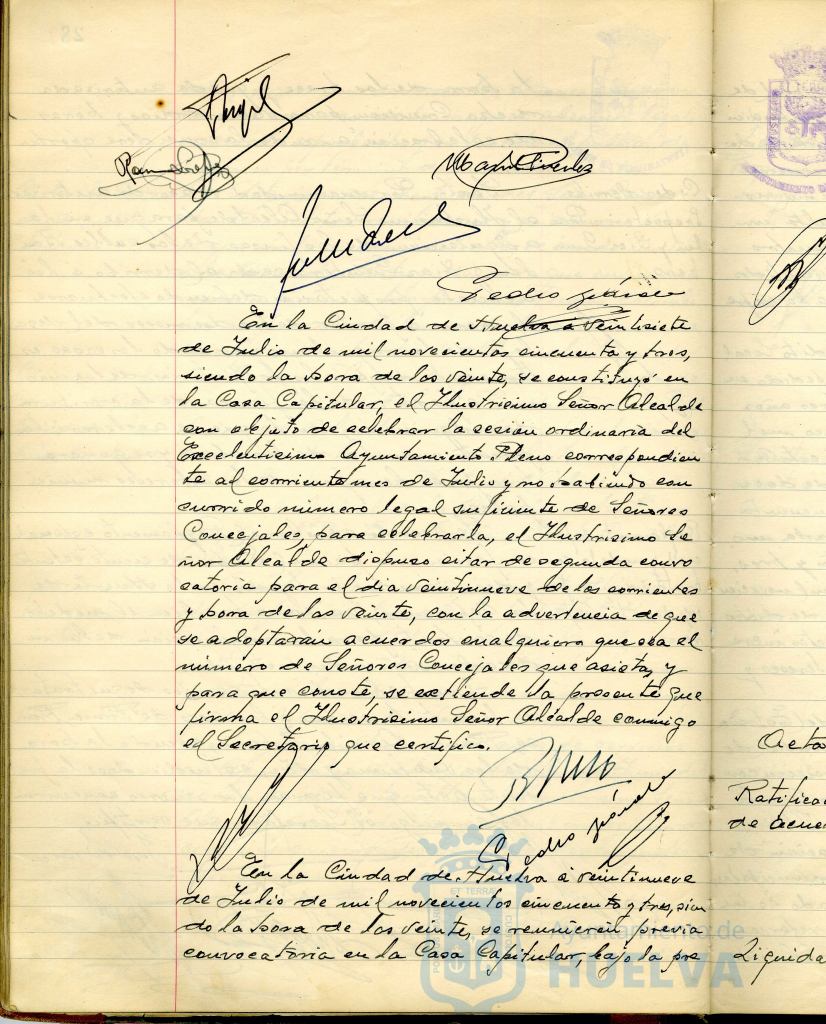 Pedro
En la Ciudad de Huelva a veintisiete
de Julio de mil novecientos cincuenta y tres,
siendo la hora de las veinte, se constituyó en
la Casa Capitular, el Ilustrisimo Señor Alcalde
con objeto de celebrar la sesión ordinaria del
Excelentisimo Ayuntamiento Pleno correspondien
te al corriente mes de Julio y no habiendo con
currido número legal suficiente de Señores
Concejales, para celebrarla, el Ilustrisimo Se
ñor Alcalde dispuso citar de segunda convo
catoria para el dia veintinueve de los corrientes
y hora de las veinte, con la advertencia de que
se adoptarán acuerdos cualquiera que sea el
número de Señores Concejales que asista, y
para que conste, se extiende la presente que
firma el Ilustrisimo Señor Alcalde conmigo
el Secretario que certifico.
Pedro
En la Ciudad de Huelva a veintinueve
de Julio de mil novecientos cincuenta y tres, sien
do la hora de las veinte, se reunieron previa
convocatoria en la Casa Capitular, bajo la pre
Ayuntamiento de
HUELVA
Acta
Ratifica
de acue
Liquida